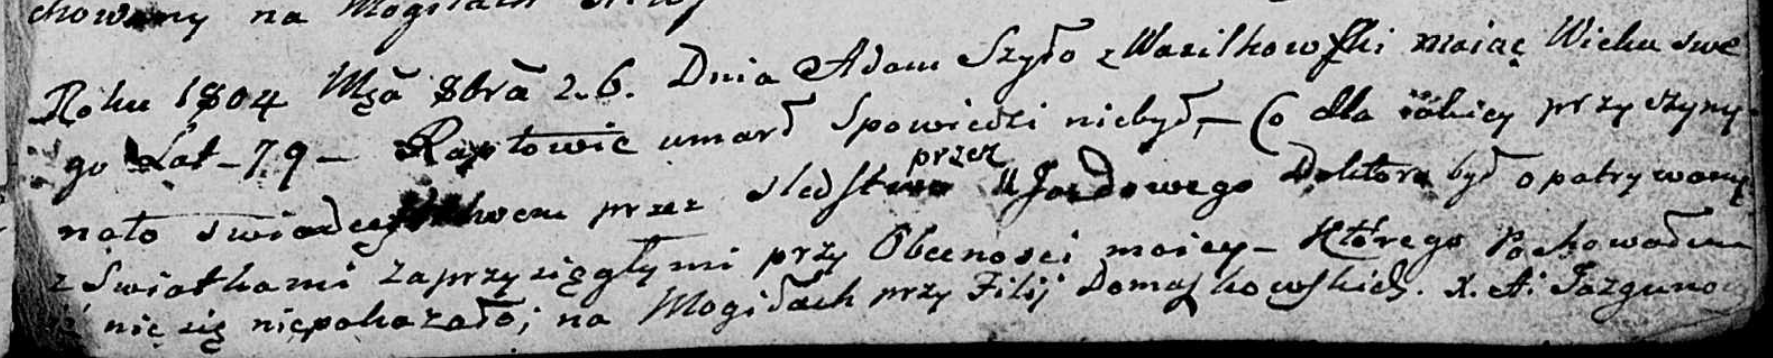 chowany na Mogiłach
Roku 1804 Mca 8bra 26. Dnia Adam Szyło z Wasilkowski maiąc Wieku swe
go Lat - 79 - Raptowie umarł Spowiedzi niebył, - Co dla iakiey przyczyny
nato swiadectwem przez sledstwo przez Ujazdowego Doktora był opatrywany
z Swiatkami zaprzysięgłymi przy Obecnosci moiey - Którego Pochowałem
nic się niepokazało; na Mogiłach przy Filij Domaszkowskich. X. A. Jazgunow